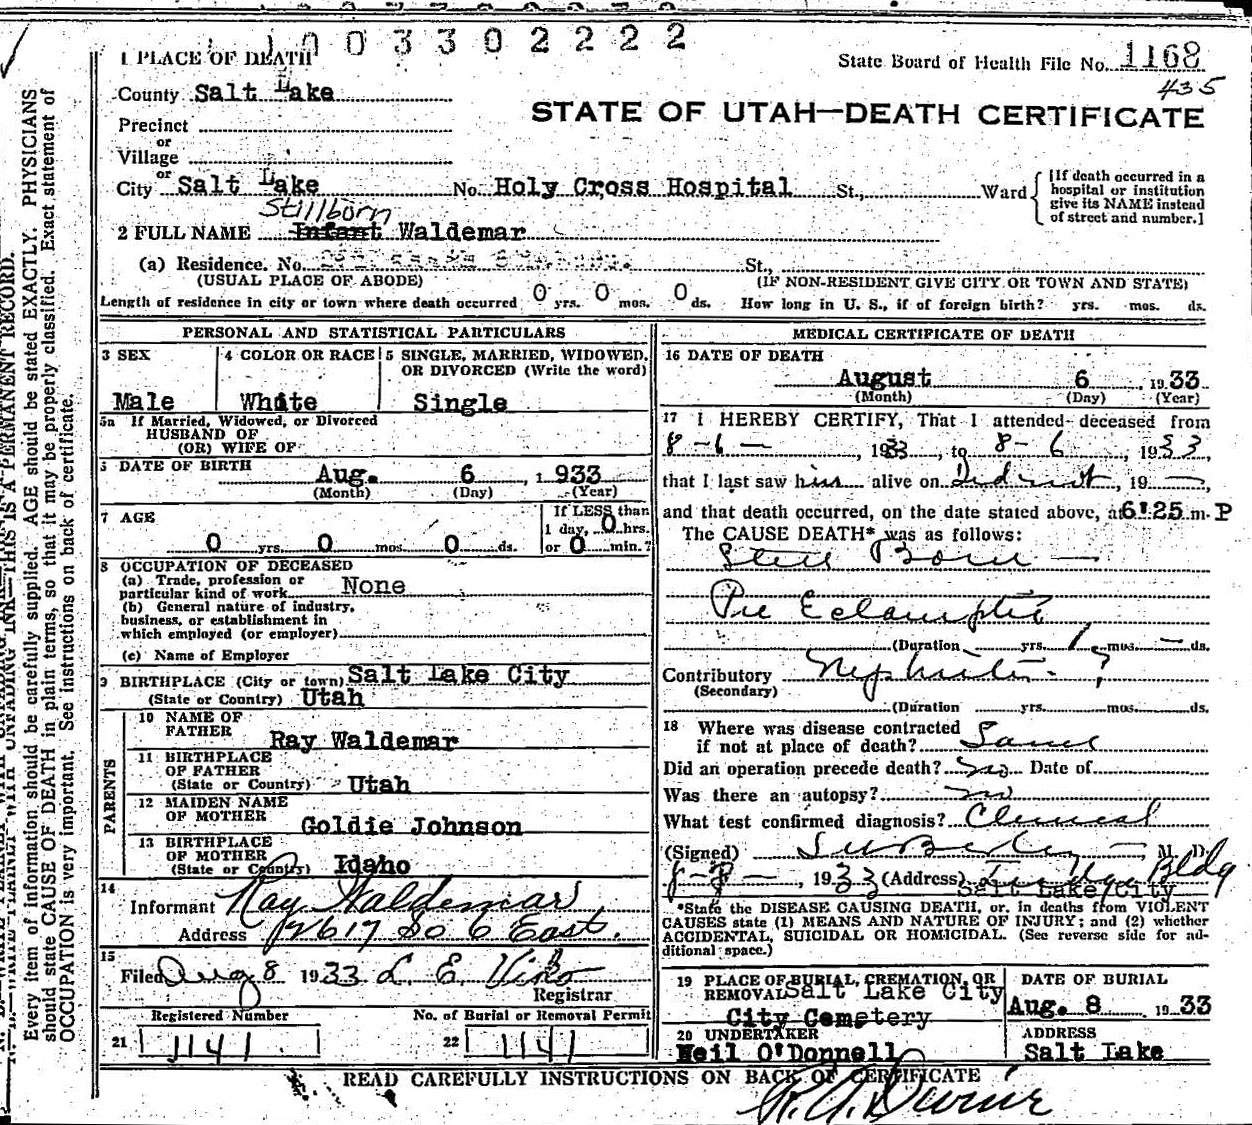 1003302222
1 PLACE OF DEATH
State Board of Health File No. 1168
435
County Salt Lake
STATE OF UTAH—DEATH CERTIFICATE
Precinct
or
Village
or
City Salt Lake No. Holy Cross Hospital St., Ward
[If death occurred in a
hospital or institution
give its NAME instead
of street and number.]
Stillborn
2 FULL NAME Infant Waldemar
(a) Residence. No. St.,
(USUAL PLACE OF ABODE) (IF NON-RESIDENT GIVE CITY OR TOWN AND STATE)
Length of residence in city or town where death occurred 0 yrs. 0 mos. 0 ds. How long in U. S., if of foreign birth? yrs. mos. ds.
PERSONAL AND STATISTICAL PARTICULARS
3 SEX
Male
4 COLOR OR RACE
White
5 SINGLE, MARRIED, WIDOWED,
OR DIVORCED (Write the word)
Single
5a If Married, Widowed, or Divorced
HUSBAND OF
(OR) WIFE OF
DATE OF BIRTH
Aug. 6, 1933
(Month) (Day) (Year)
7 AGE
0 yrs. 0 mos. 0 ds.
If LESS than
1 day, 0 hrs.
or 0 min.?
8 OCCUPATION OF DECEASED
(a) Trade, profession or
particular kind of work None
(b) General nature of industry,
business, or establishment in
which employed (or employer)
(c) Name of Employer
9 BIRTHPLACE (City or town) Salt Lake City
(State or Country) Utah
PARENTS
10 NAME OF
FATHER Ray Waldemar
11 BIRTHPLACE
OF FATHER
(State or Country) Utah
12 MAIDEN NAME
OF MOTHER Goldie Johnson
13 BIRTHPLACE
OF MOTHER
(State or Country) Idaho
14
Informant Ray Waldemar
Address 2617 So 6 East.
15
Filed Aug 8 1933 L. E. Viko
Registrar
Registered Number
21 1141
No. of Burial or Removal Permit
22 1141
MEDICAL CERTIFICATE OF DEATH
16 DATE OF DEATH
August 6, 1933
(Month) (Day) (Year)
17 I HEREBY CERTIFY, That I attended deceased from
8-6-, 1933, to 8-6, 1933,
that I last saw him alive on Did not, 19—,
and that death occurred, on the date stated above, at 6:25 m. P
The CAUSE DEATH* was as follows:
Still Born —
Pre Eclamptic
(Duration yrs. 1 mos. — ds.
Contributory Nephritis - ?
(Secondary)
(Duration yrs. mos. ds.
18 Where was disease contracted
if not at place of death? Same
Did an operation precede death? No Date of
Was there an autopsy? no
What test confirmed diagnosis? Clinical
(Signed) M. D.
8-8-, 1933 (Address) Bldg
Salt Lake City
*State the DISEASE CAUSING DEATH, or, in deaths from VIOLENT
CAUSES state (1) MEANS AND NATURE OF INJURY; and (2) whether
ACCIDENTAL, SUICIDAL OR HOMICIDAL. (See reverse side for ad-
ditional space.)
19 PLACE OF BURIAL, CREMATION, OR
REMOVAL Salt Lake City
City Cemetery
DATE OF BURIAL
Aug. 8, 1933
20 UNDERTAKER
Neil O'Donnell
ADDRESS
Salt Lake
READ CAREFULLY INSTRUCTIONS ON BACK OF CERTIFICATE
THIS IS A PERMANENT RECORD.
Every item of information should be carefully supplied. AGE should be stated EXACTLY. PHYSICIANS
should state CAUSE OF DEATH in plain terms, so that it may be properly classified. Exact statement of
OCCUPATION is very important. See instructions on back of certificate.